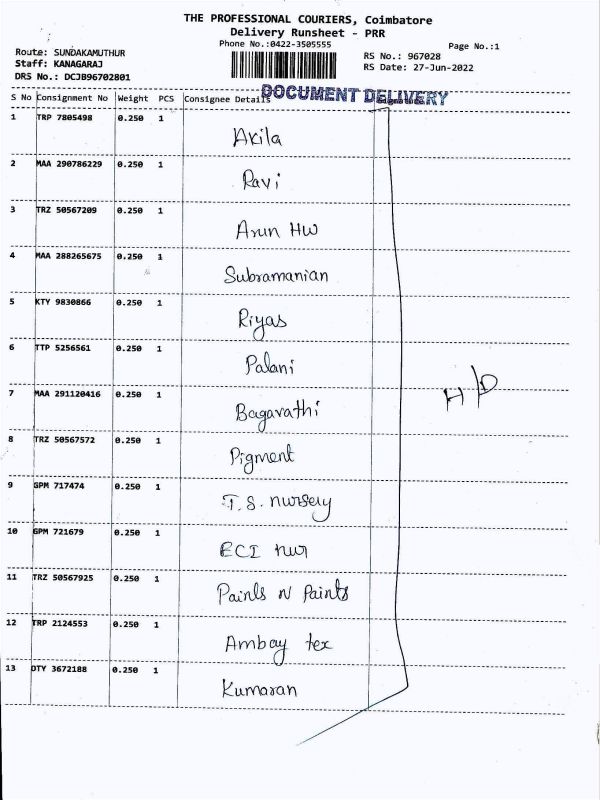 THE PROFESSIONAL COURIERS, Coimbatore
Delivery Runsheet - PRR
Phone No.:0422-3505555
Page No.:1
Route: SUNDAKAMUTHUR
Staff: KANAGARAJ
DRS No.: DCJB96702801
RS No.: 967028
RS Date: 27-Jun-2022
DOCUMENT DELIVERY
S No Consignment No Weight PCS Consignee Details
1 TRP 7805498 0.250 1 Akila
2 MAA 290786229 0.250 1 Ravi
3 TRZ 50567209 0.250 1 Arun HW
4 MAA 288265675 0.250 1 Subramanian
5 KTY 9830866 0.250 1 Riyas
6 TTP 5256561 0.250 1 Palani
7 MAA 291120416 0.250 1 Bagavathi
H/D
8 TRZ 50567572 0.250 1 Pigment
9 GPM 717474 0.250 1 T.S. nursery
10 GPM 721679 0.250 1 ECI nur
11 TRZ 50567925 0.250 1 Paints N Paints
12 TRP 2124553 0.250 1 Ambay tex
13 DTY 3672188 0.250 1 Kumaran